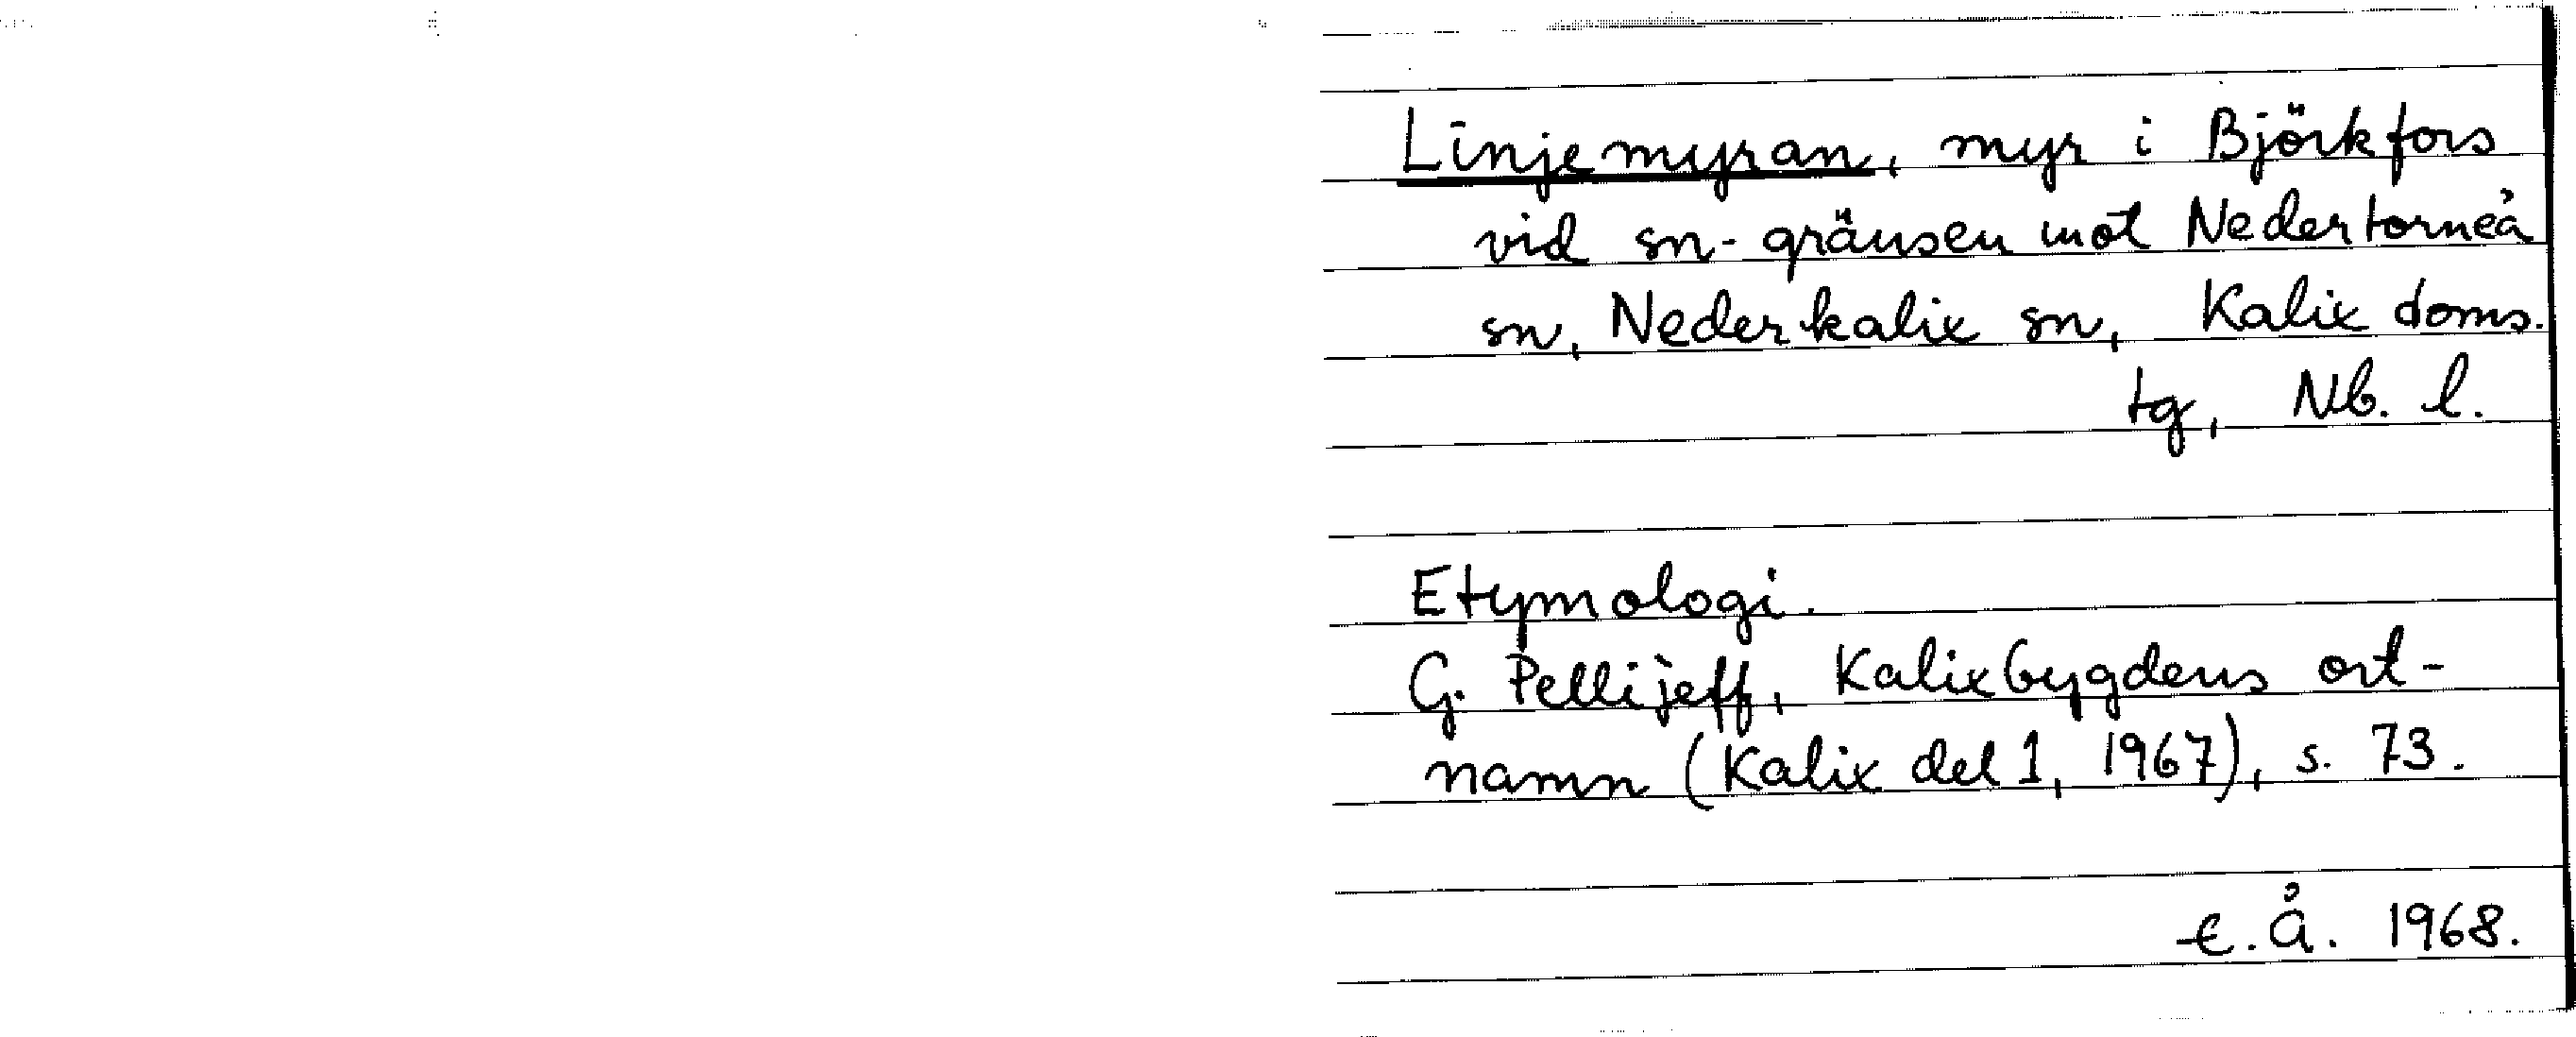 Linjemyran, myr i Björkfors
vid sn-gränsen mot Nedertorneå
sn, Nederkalix sn, Kalix doms.
tg, Nb. l.
Etymologi.
G. Pellijeff, Kalixbygdens ort-
namn (Kalix del 1, 1967), s. 73.
E. Å. 1968.